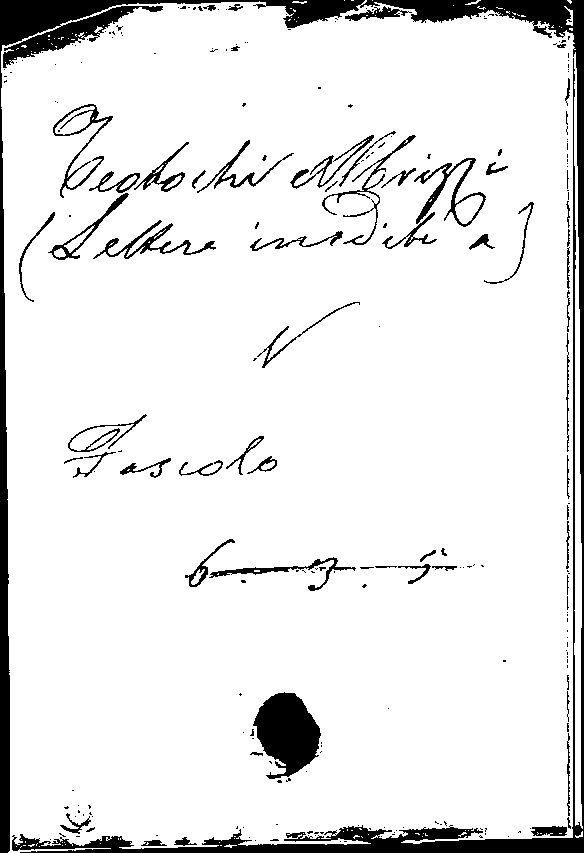 Teotochi Albrizzi
(Lettere inedite a)
V
Foscolo
6. 3. 5